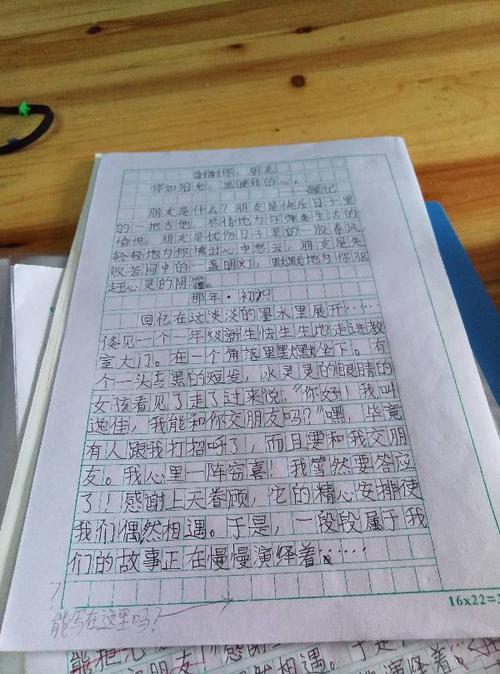 谢谢你，朋友
你如阳光，温暖我的心。
题记
朋友是什么？朋友是快乐日子里
的一把吉他，尽情地为你弹奏生活的
愉悦，朋友是忧伤日子里的一股春风
轻轻地为你拂去心中愁云，朋友是失
败苦闷中的一盏明灯，默默地为你驱
赶心灵的阴霾。
那年·初识
回忆在这淡淡的墨水里展开……
俊见一个一年级新生怯生生地走进教
室大门。在一个角落里默默坐下。有
个一头乌黑的短发，水灵灵的眼睛的
女孩看见了走了过来说，"你好！我叫
逸佳，我能和你交朋友吗？"嘿，毕竟
有人跟我打招呼了，而且要和我交朋
友。我心里一阵窃喜！我当然要答应
了！！感谢上天眷顾，它的精心安排使
我们偶然相遇。于是，一段段属于我
们的故事正在慢慢演绎着……
16x22=3
？能写在这里吗？
朋友！感谢
然相遇。于是
演绎着……